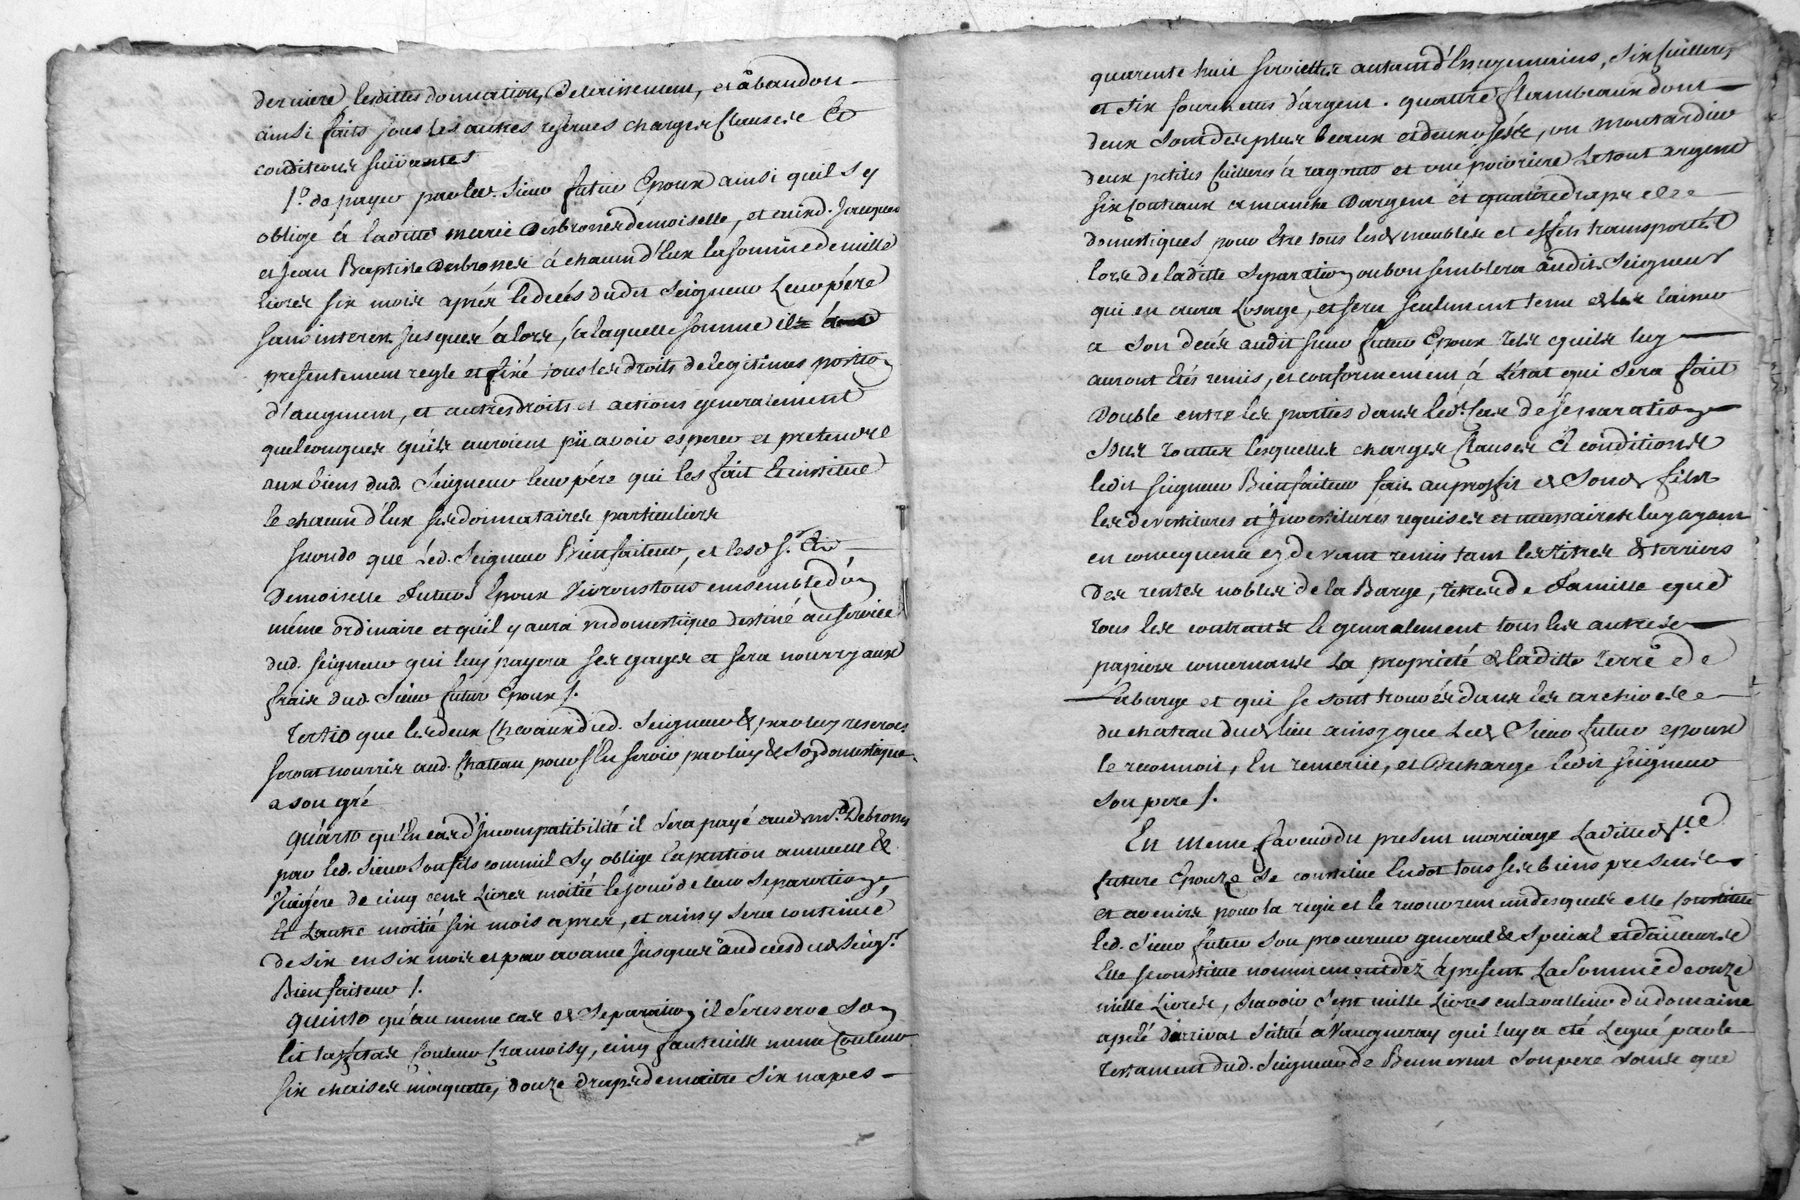 derniere lesdittes donnation, Delaissement, et abandon
ainsi faits sous les autres reserves charges Clauses Et
conditions suivantes
1º. de payer par led. Sieur futur Epoux ainsi quil s'y
oblige à laditte marie Desbrosses demoiselle, et auxd. Jacques
et Jean Baptiste Desbrosses à chacun d'Eux la somme de mille
livres six mois aprés le decés dudit Seigneur Leur pére
sans interest jusques à lors, à laquelle somme il a
presentement reglé et fixé tous les droits de legitimes portion
d'augment, et autres droits et actions generalement
quelconques quils auroient pû avoir esperer et pretendre
aux biens dud. Seigneur leur pére qui les fait Et institue
le chacun d'Eux ses donnataires particuliers
secundo que Led. Seigneur Bienfaiteur, et lesd. sr. Et
Demoiselle futurs Epoux vivront tous ensemble d'un
méme ordinaire et quil y aura un domestique destiné au service
dud. seigneur qui luy payera ses gages et sera nourry aux
frais dud. Sieur futur Epoux /.
Tertio que les deux Chevaux dud. Seigneur par luy reservés
seront nourris aud. Chateau pour s'En servir par luy & son domestique
a son gré
quarto qu'En cas d'Incompatibilité il sera payé aud. mr. Debrosses
par led. Sieur son fils comm'il s'y oblige la pention annuelle &
viagére de cinq cens Livres moitié le jour de leur separation
Et L'autre moitié six mois apres, et ainsy sera continué
de six en six mois et par avance jusques au deces dud. Seigr.
Bienfaiteur /.
quinto qu'au meme cas de Separation il se reserve son
lit taffetas Couleur Cramoisy, cinq fauteuils meme Couleur
six chaises moquette, douze draps de maitre six napes
quarente huit serviettes autant d'Essuyemains, six Cuilleres
et six fourchettes d'argent. quattre flambeaux dont
deux sont des plus beaux et deux usés, un moutardier
deux petites Cuilleres à ragouts et une poivriere Le tout argent
six Couteaux a manche D'argent et quattre draps de
domestiques pour Etre tous lesd. meubles et effets transportés
lors de laditte Separation ou bon semblera audit Seigneur
qui en aura L'usage, et sera seulement tenu de les laisser
a son decés audit sieur futur Epoux tels quils luy
auront étés remis, et conformement à L'état qui sera fait
Double entre les parties dans led. Cas de separation
Sous touttes lesquelles charges Clauses Et conditions
ledit seigneur Bienfaiteur fait au proffit de Sond. fils
les devestitures et Investitures requises et necessaires luy ayant
en consequence cy devant remis tant les titres & terriers
Des rentes nobles de la Barge, titres de famille que
tous les contrats & generalement tous les autres
papiers concernants La proprieté de laditte terre de
Labarge et qui se sont trouvés dans les archives
du chateau dud. lieu ainsy que Led. Sieur futur epoux
le reconnoit, En remercie, et Decharge ledit seigneur
son pere /.
En meme faveur du present marriage Laditte dlle
future Epouze se constitue En dot tous ses biens presents
et avenirs pour la regie et le recouvrement desquels elle constitue
led. Sieur futur son procureur general & special et d'ailleurs
Elle se constitue nommement dez à present La Somme de onze
mille Livres, Sçavoir Sept mille Livres en la valleur du domaine
apelé darrival Situé a Vaugneray qui luy a eté Legué par le
Testament dud. Seigneur de Benevent Son pere Sous que